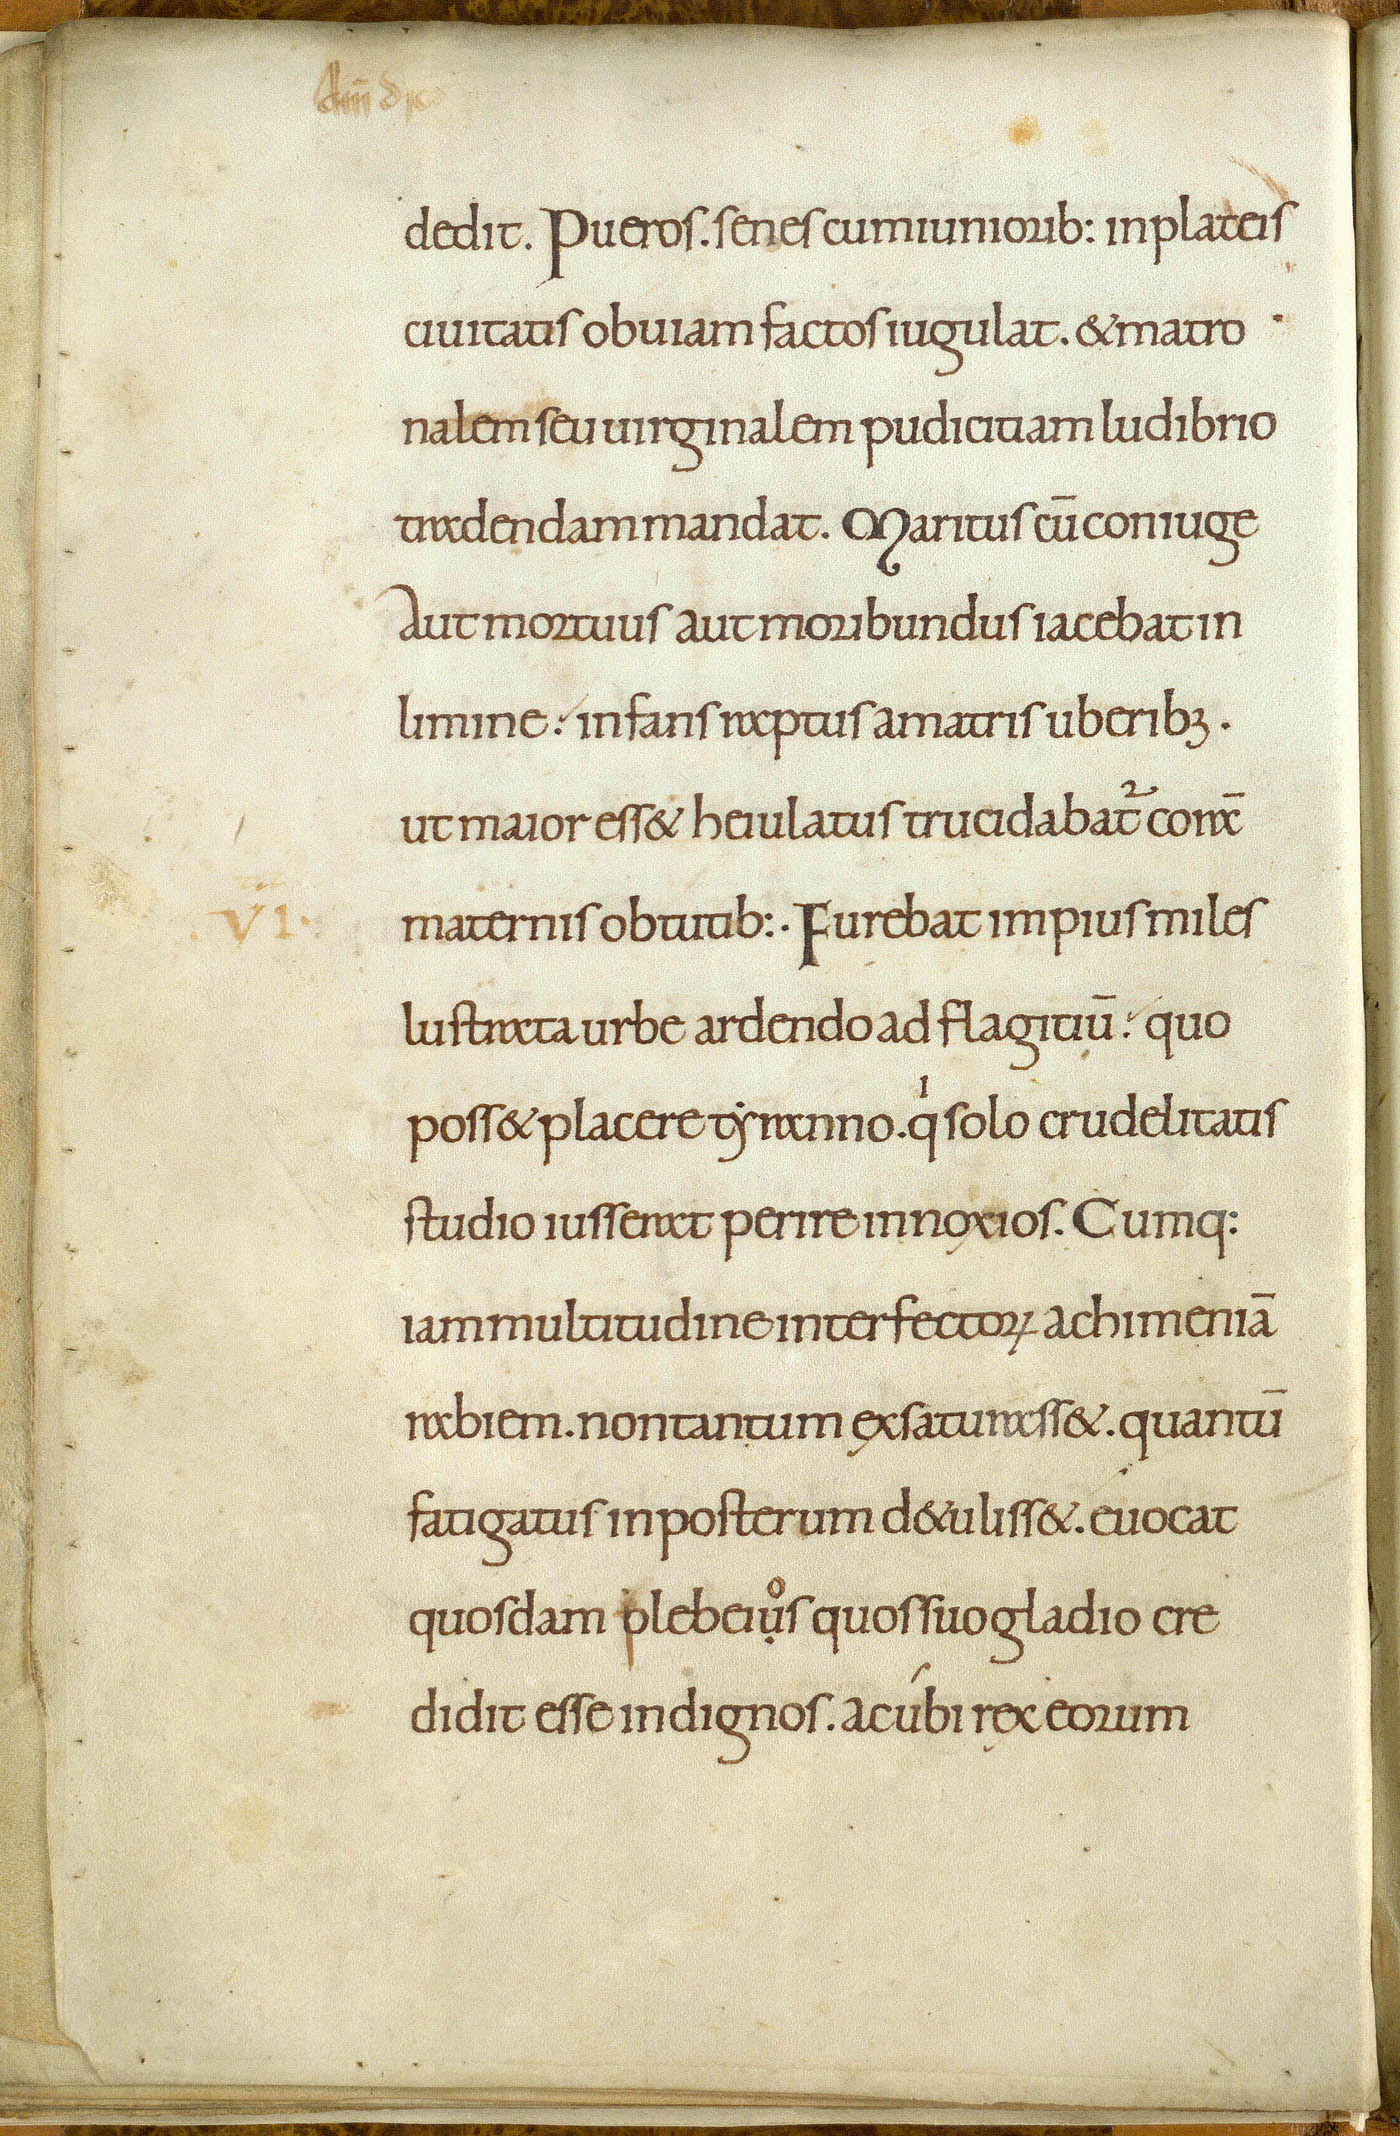 dedit. Pueros. senes cumiuniorib: inplateis
ciuitatis obuiam factos iugulat. & matro
nalem seu uirginalem pudicitiam ludibrio
tradendam mandat. Maritus cū coniuge
Aut mortuus aut moribundus iacebat in
limine: infans raptus amatris uberibꝫ.
ut maior ess& heiulatus trucidabat᷑ corā
maternis obtutib:. Furebat impius miles
VI.
lustrata urbe ardendo ad flagitiū: quo
poss& placere tẏranno. qͥ solo crudelitatis
studio iusserat perire innoxios. Cumq:
iam multitudine interfectoꝝ achimeniā
rabiem. non tantum exsaturass&. quantū
fatigatus inposterum d&uliss&. euocat
quosdam plebeiụos quos suo gladio cre
didit esse indignos. ac úbi rex eorum